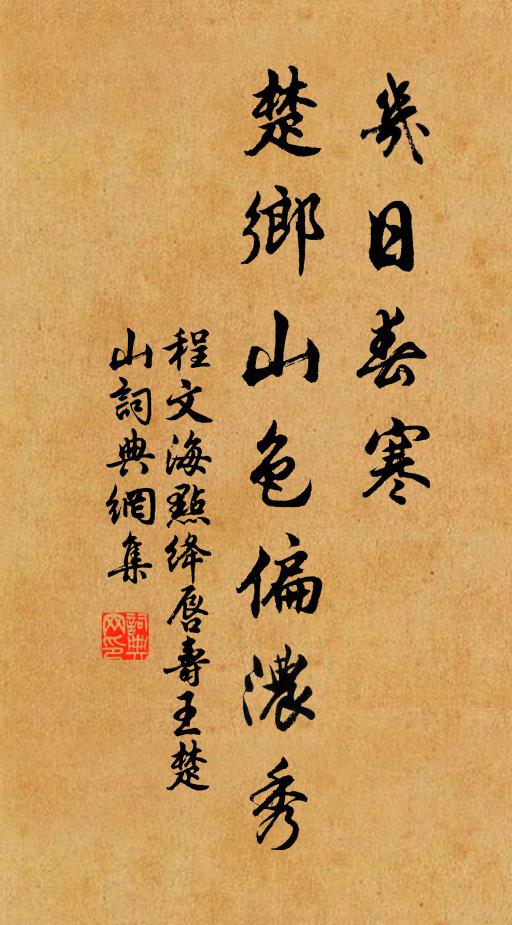 幾日春寒
楚鄉山色偏濃秀
程文海點絳唇壽王楚
山詞典網集
詞典網印